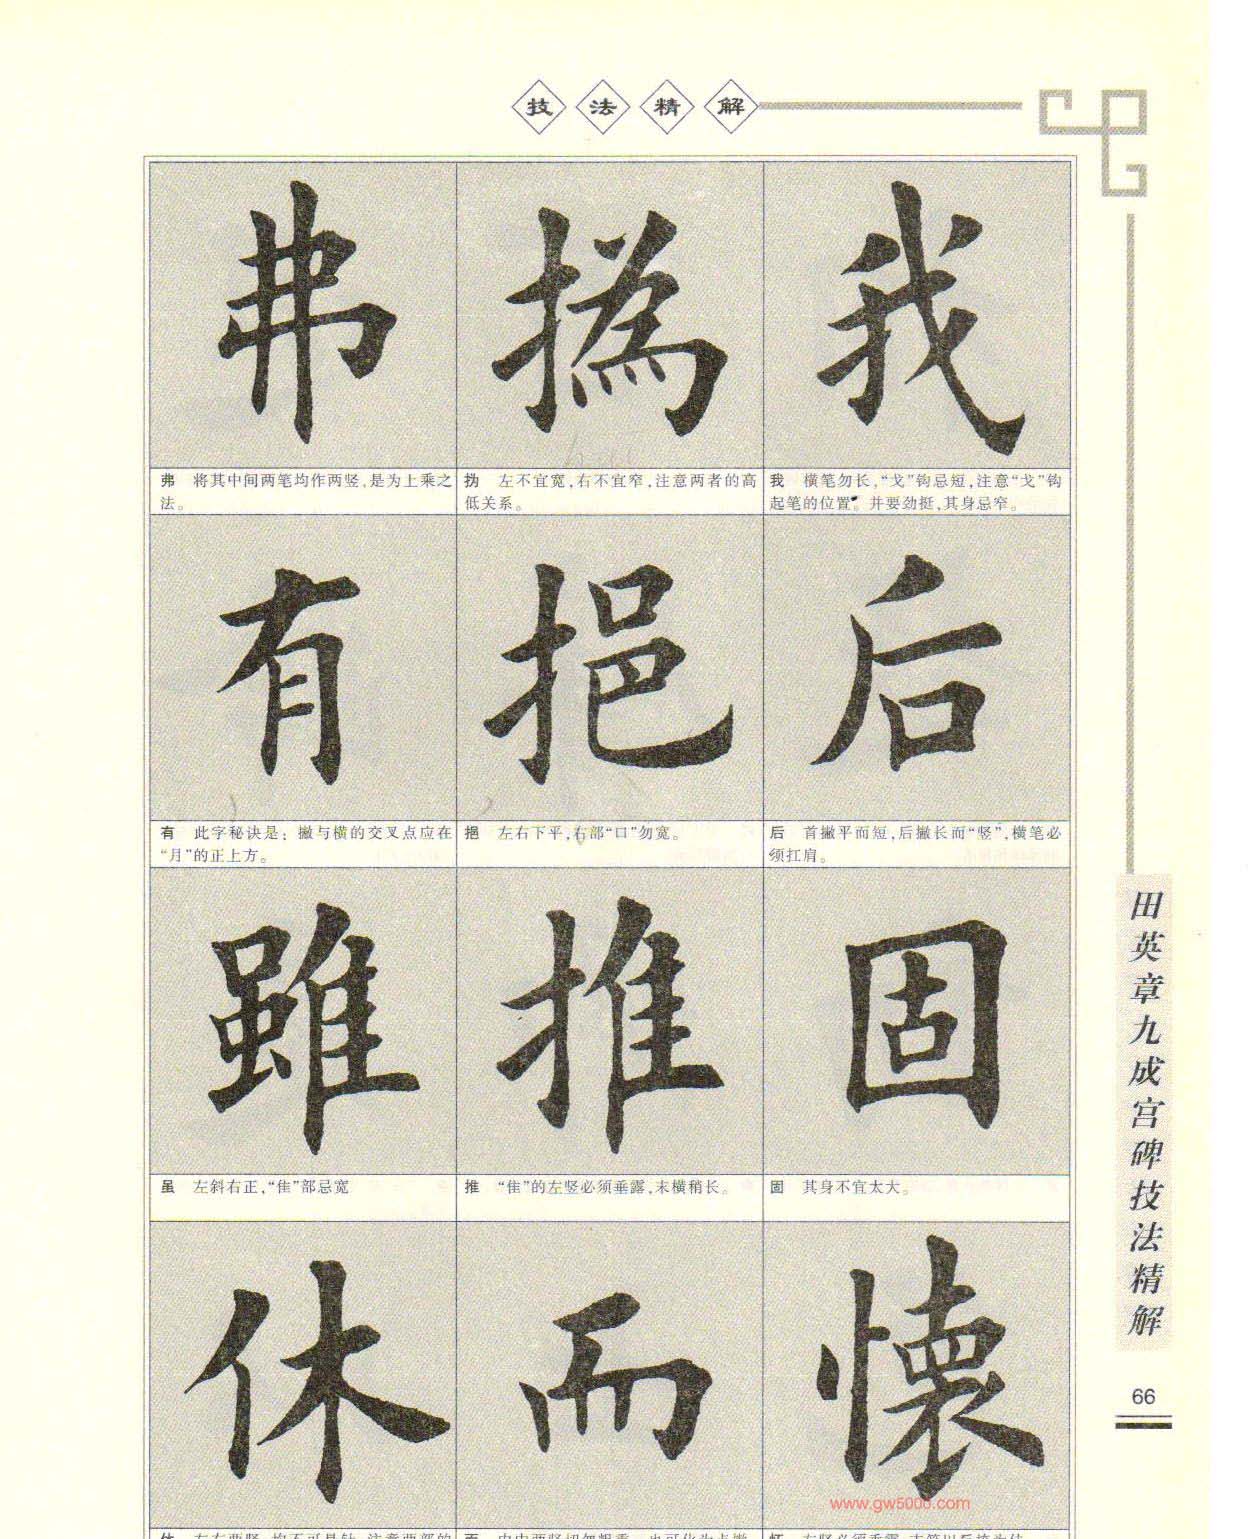 技法精解
弗 撝 我
弗 将其中间两笔均作两竖,是为上乘之
法。
㧑 左不宜宽,右不宜窄,注意两者的高
低关系。
我 横笔勿长,“戈”钩忌短,注意“戈”钩
起笔的位置。并要劲挺,其身忌窄。
有 挹 后
有 此字秘诀是:撇与横的交叉点应在
“月”的正上方。
挹 左右下平,右部“口”勿宽。
后 首撇平而短,后撇长而“竖”,横笔必
须扛肩。
雖 推 固
虽 左斜右正,“隹”部忌宽
推 “隹”的左竖必须垂露,末横稍长。
固 其身不宜太大。
休 而 懐
田英章九成宫碑技法精解
66
www.gw5000.com